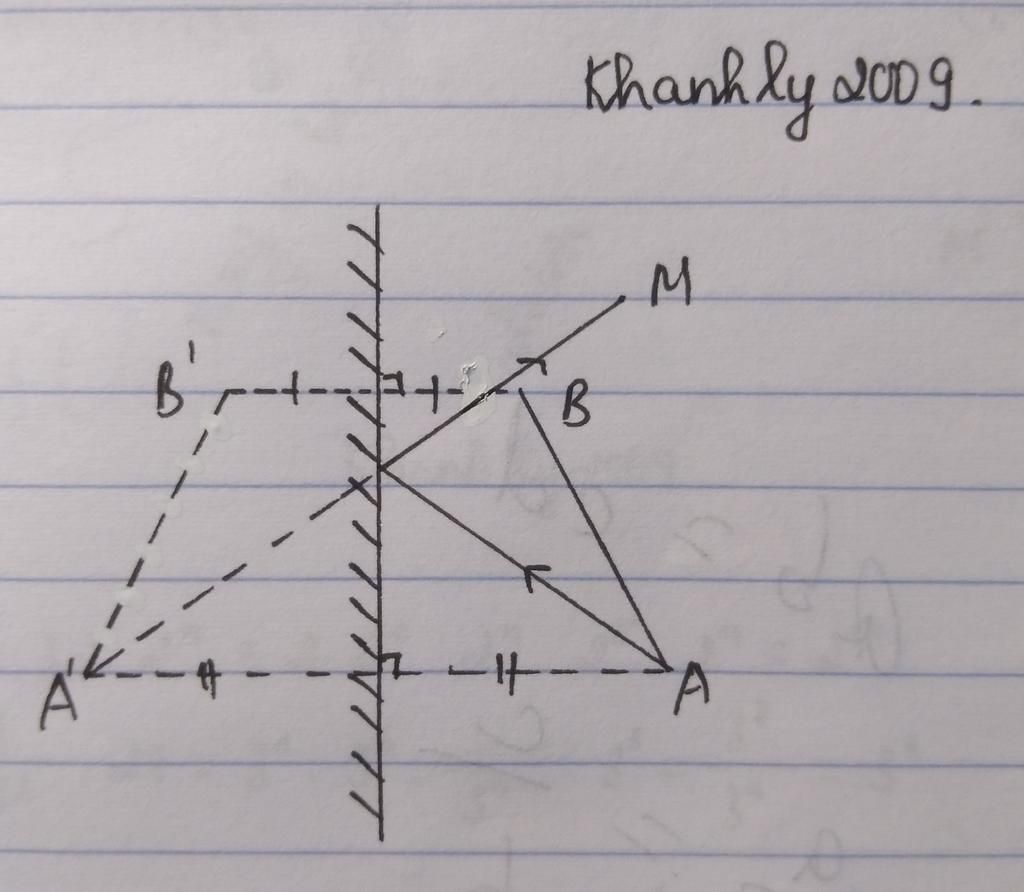 Khanhly 2009.
M
B'
B
A'
A